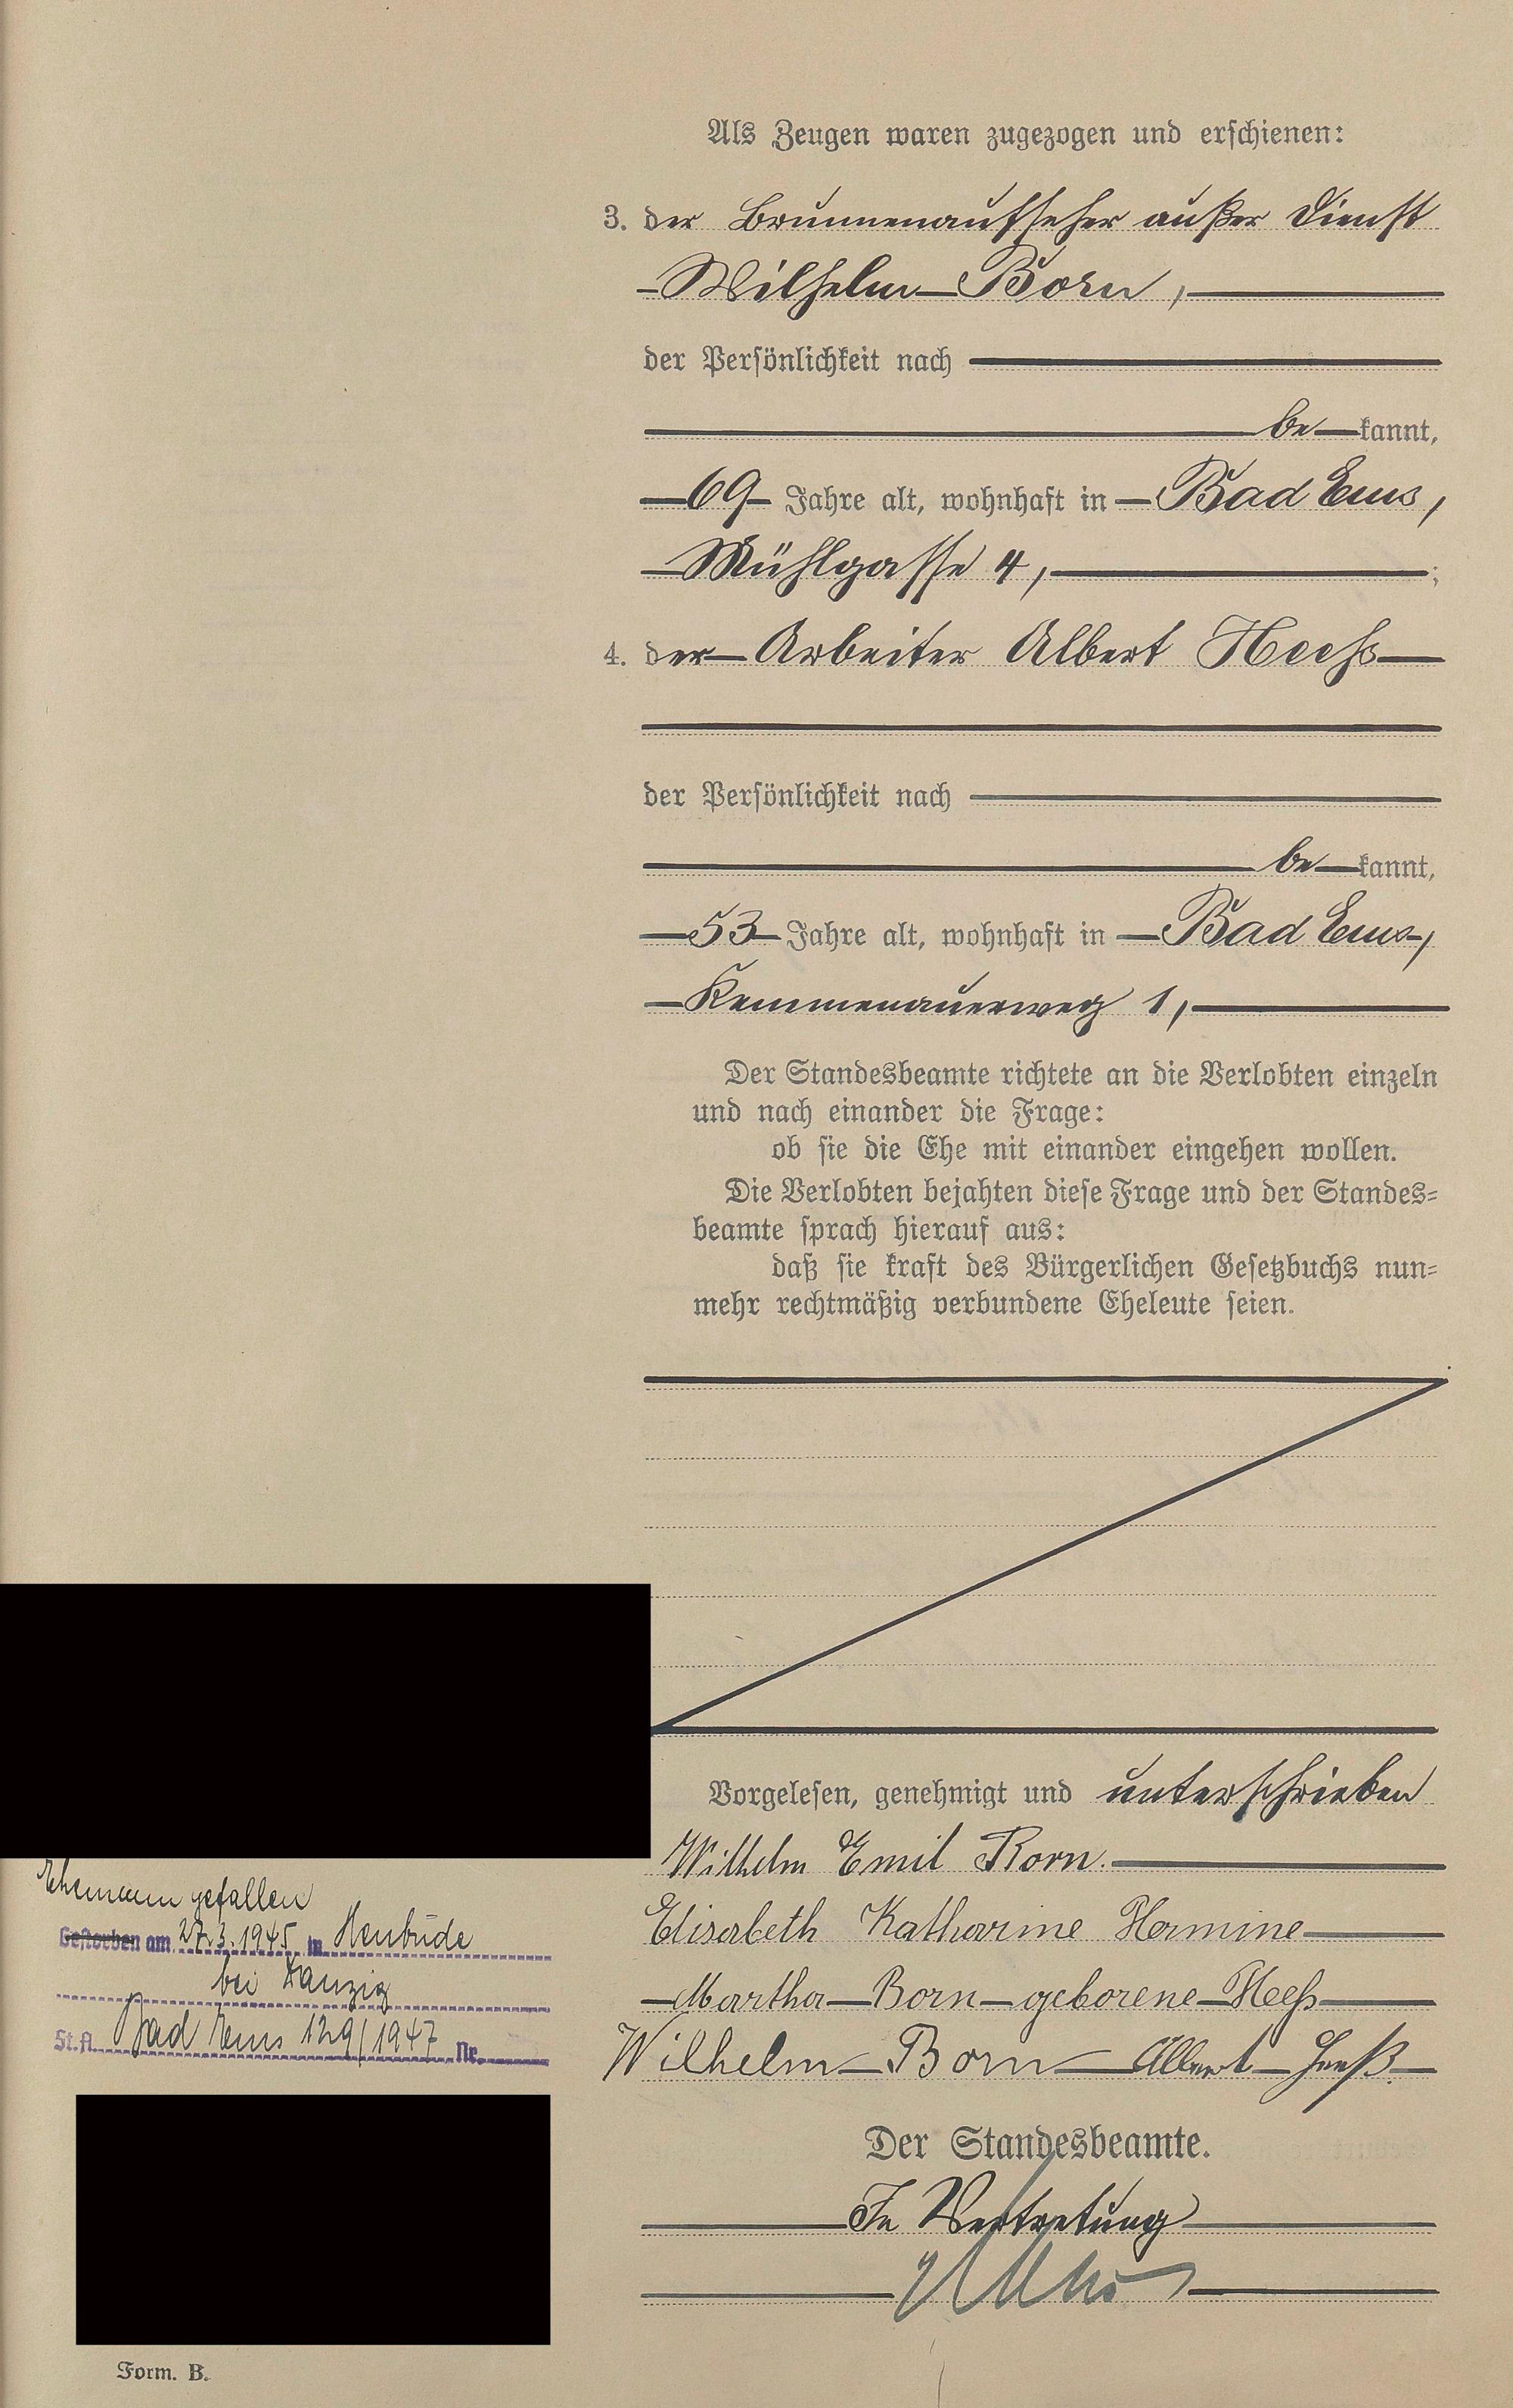 Als Zeugen waren zugezogen und erschienen:
3. der Brunnenaufseher außer Dienst
Wilhelm Born,
der Persönlichkeit nach
be kannt,
69 Jahre alt, wohnhaft in Bad Ems,
Mühlgasse 4, ;
4. der Arbeiter Albert Heeß
der Persönlichkeit nach
be kannt,
53 Jahre alt, wohnhaft in Bad Ems,
Kemmenauerweg 1,
Der Standesbeamte richtete an die Verlobten einzeln
und nach einander die Frage:
ob sie die Ehe mit einander eingehen wollen.
Die Verlobten bejahten diese Frage und der Standes-
beamte sprach hierauf aus:
daß sie kraft des Bürgerlichen Gesetzbuchs nun-
mehr rechtmäßig verbundene Eheleute seien.
Vorgelesen, genehmigt und unterschrieben
Wilhelm Emil Born.
Elisabeth Katharine Hermine
Martha Born geborene Heeß
Wilhelm Born Albert Heeß.
Der Standesbeamte.
In Vertretung
Ehemann gefallen
Gestorben am 27.3.1945 in Heubude
bei Danzig
St.A. Bad Ems 129/1947 Nr.
Form. B.